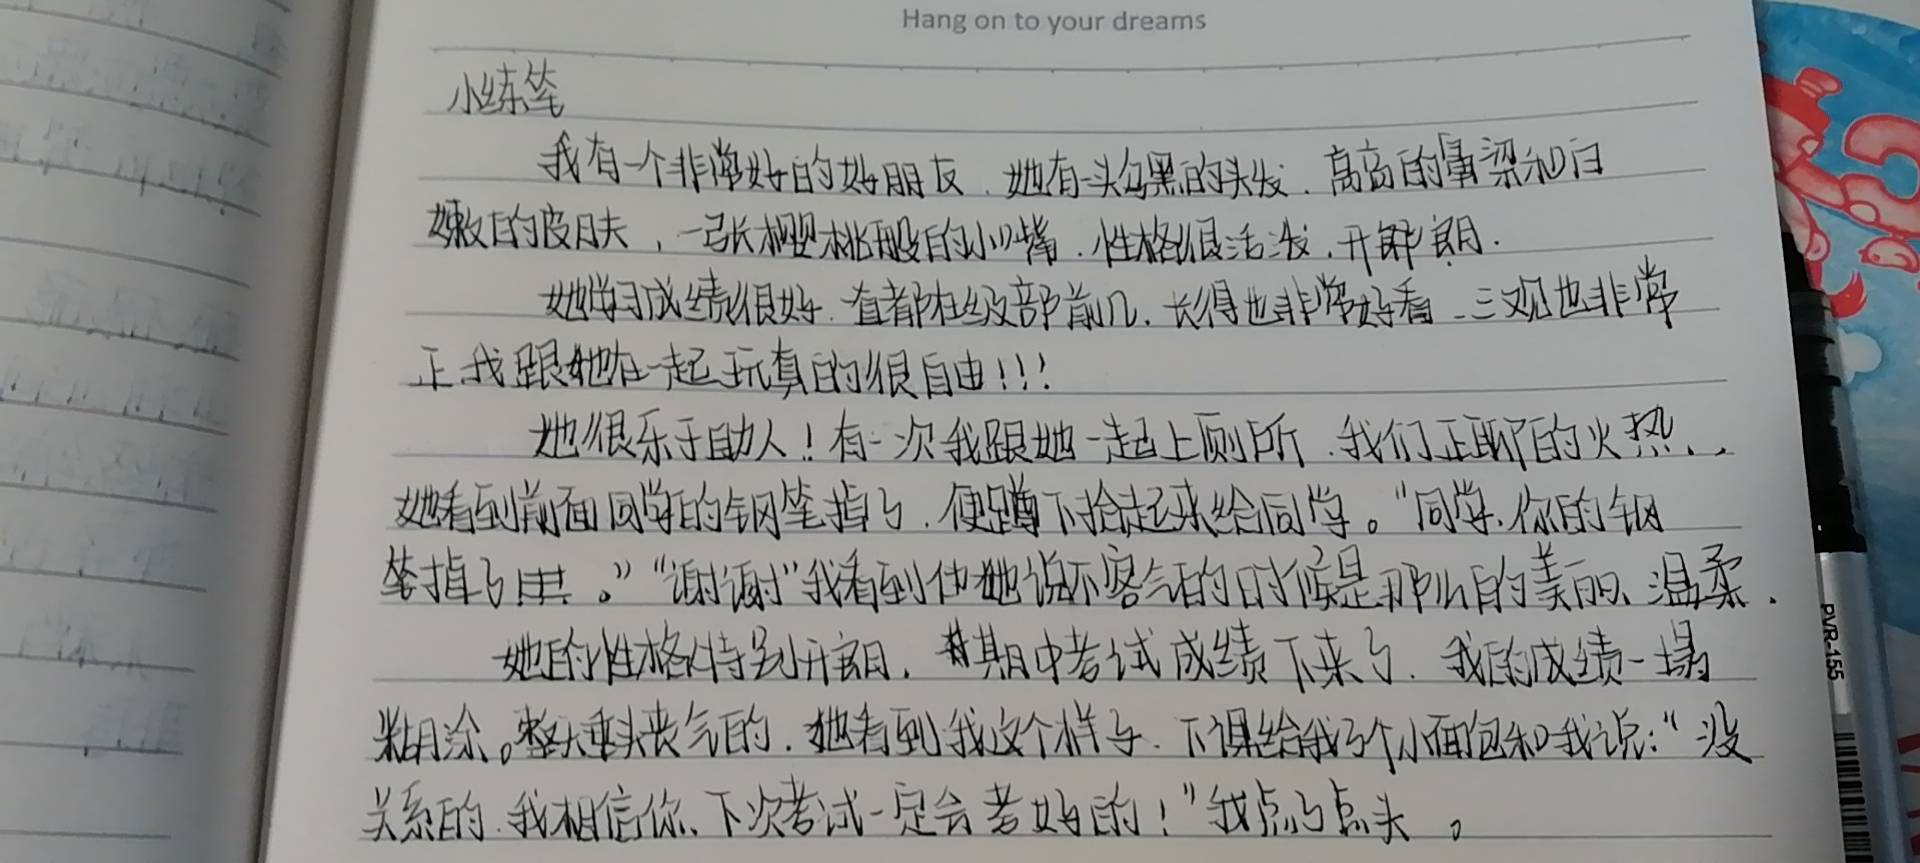 Hang on to your dreams
小练笔
我有一个非常好的好朋友，她有一头乌黑的头发，高高的鼻梁和白
嫩的皮肤，一张樱桃般的小嘴，性格很活泼，开朗。
她学习成绩很好，一直都在级部前几，长得也非常好看，三观也非常
正，我跟她在一起玩真的很自由！！！
她很乐于助人！有一次我跟她一起上厕所，我们正聊的火热，
她看到前面同学的钢笔掉了，便蹲下拾起来给同学。“同学，你的钢
笔掉了。”“谢谢”我看到她说不客气的时候是那么的美丽、温柔，
她的性格特别开朗，期中考试成绩下来了，我的成绩一塌
糊涂。整天垂头丧气的，她看到我这个样子，下课给我了个小面包和我说：“没
关系的，我相信你，下次考试一定会考好的！”我点了点头。
PVR-155